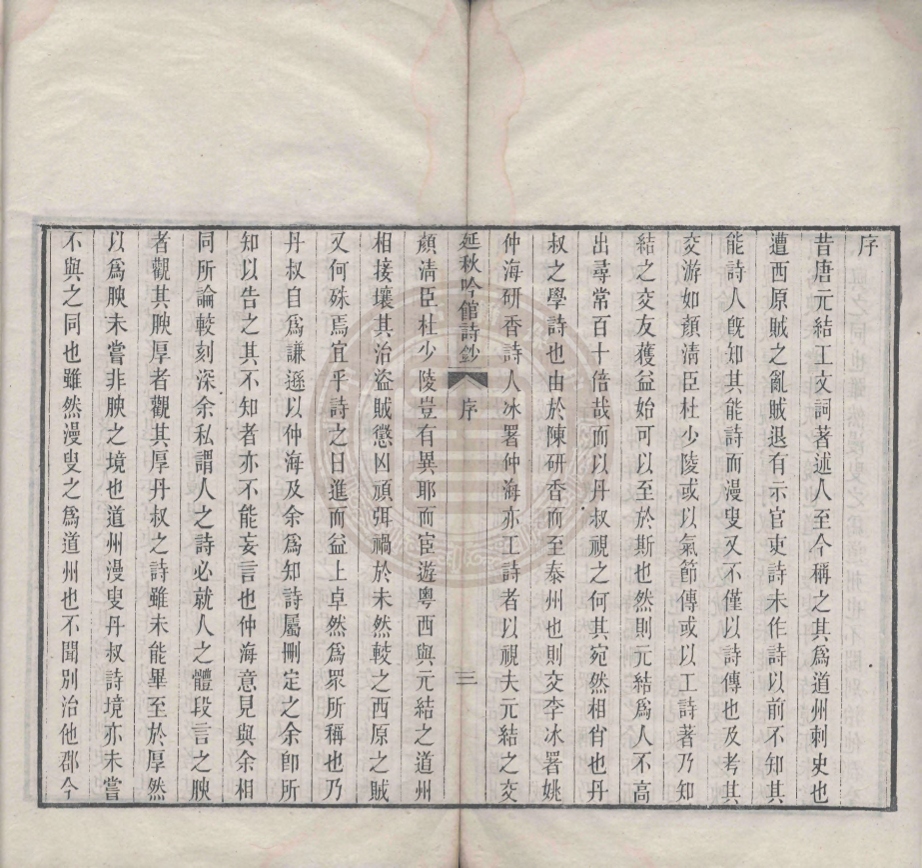 序
昔唐元結工文詞著述人至今稱之其為道州刺史也
遭西原賊之亂賊退有示官吏詩未作詩以前不知其
能詩人既知其能詩而漫叟又不僅以詩傳也及考其
交游如顏清臣杜少陵或以氣節傳或以工詩著乃知
結之交友獲益始可以至於斯也然則元結為人不高
出尋常百十倍哉而以丹叔視之何其宛然相肖也丹
叔之學詩也由於陳研香而至泰州也則交李冰署姚
仲海研香詩人冰署仲海亦工詩者以視夫元結之交
延秋吟館詩鈔 序 三
顏清臣杜少陵豈有異耶而宦遊粵西與元結之道州
相接壤其治盜賊懲凶頑弭禍於未然較之西原之賊
又何殊焉宜乎詩之日進而益上卓然為眾所稱也乃
丹叔自為謙遜以仲海及余為知詩屬刪定之余卽所
知以告之其不知者亦不能妄言也仲海意見與余相
同所論較刻深余私謂人之詩必就人之體段言之腴
者觀其腴厚者觀其厚丹叔之詩雖未能畢至於厚然
以為腴未嘗非腴之境也道州漫叟丹叔詩境亦未嘗
不與之同也雖然漫叟之為道州也不聞別治他郡今